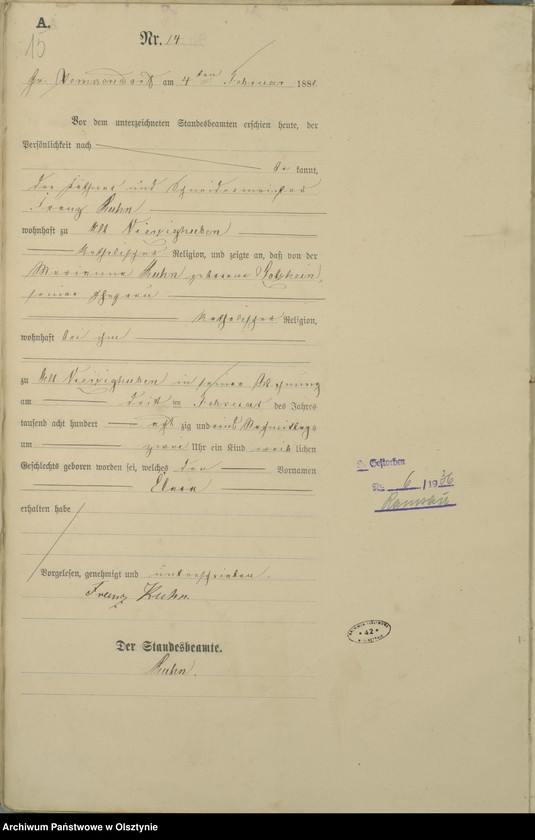 A.
15
Nr. 14
Gr. am 4ten Februar 1881.
Vor dem unterzeichneten Standesbeamten erschien heute, der
Persönlichkeit nach
be kannt,
der und Schneidermeister
Franz Kuhn
wohnhaft zu Alt Vierzighuben
katholischer Religion, und zeigte an, daß von der
Marianna Kuhn geborene
seiner Ehefrau
katholischer Religion,
wohnhaft bei ihm
zu Alt Vierzighuben in seiner Wohnung
am ten Februar des Jahres
tausend acht hundert acht zig und eins Nachmittags
um zwei Uhr ein Kind weib lichen
Geschlechts geboren worden sei, welches den Vornamen
Clara
erhalten habe
Vorgelesen, genehmigt und unterschrieben.
Franz Kuhn
Der Standesbeamte.
Kuhn.
Gestorben
Nr. 6 / 1936
Ramsau
42
Archiwum Państwowe w Olsztynie